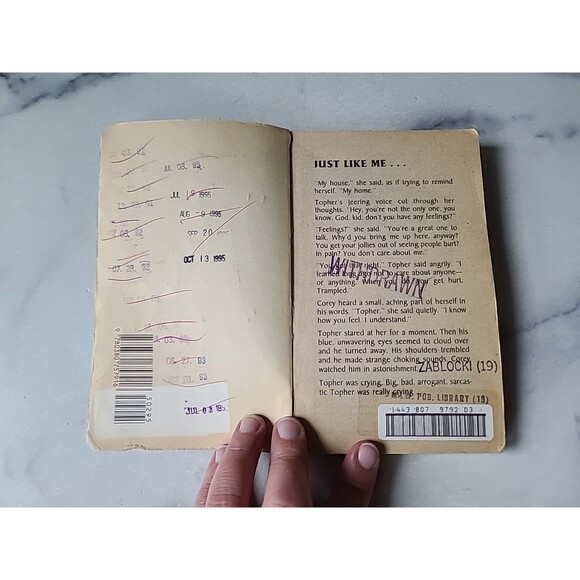 JUL 03. 95.
JUL 19 1995
AUG -9 1995
SEP 20
OCT 13 1995
03. 92
07. 28. 92
03. 93
27. 93
9780380759916
50295
JUST LIKE ME . . .
"My house," she said, as if trying to remind
herself. "My home."
Topher's jeering voice cut through her
thoughts. "Hey, you're not the only one, you
know. God, kid, don't you have any feelings?"
"Feelings!" she said. "You're a great one to
talk. Why'd you bring me up here, anyway?
You get your jollies out of seeing people hurt?
In pain? You don't care about me."
right," Topher said angrily. "I
learned long ago not to care about anyone—
or anything. When you get hurt.
Trampled."
WITHDRAWN
Corey heard a small, aching part of herself in
his words. "Topher," she said quietly. "I know
how you feel. I understand."
Topher stared at her for a moment. Then his
blue, unwavering eyes seemed to cloud over
and he turned away. His shoulders trembled
and he made strange choking sounds. Corey
watched him in astonishment.
ZABLOCKI (19)
Topher was crying. Big, bad, arrogant, sarcas-
tic Topher was really crying.
PUB. LIBRARY (19)
1443 807 9792 03